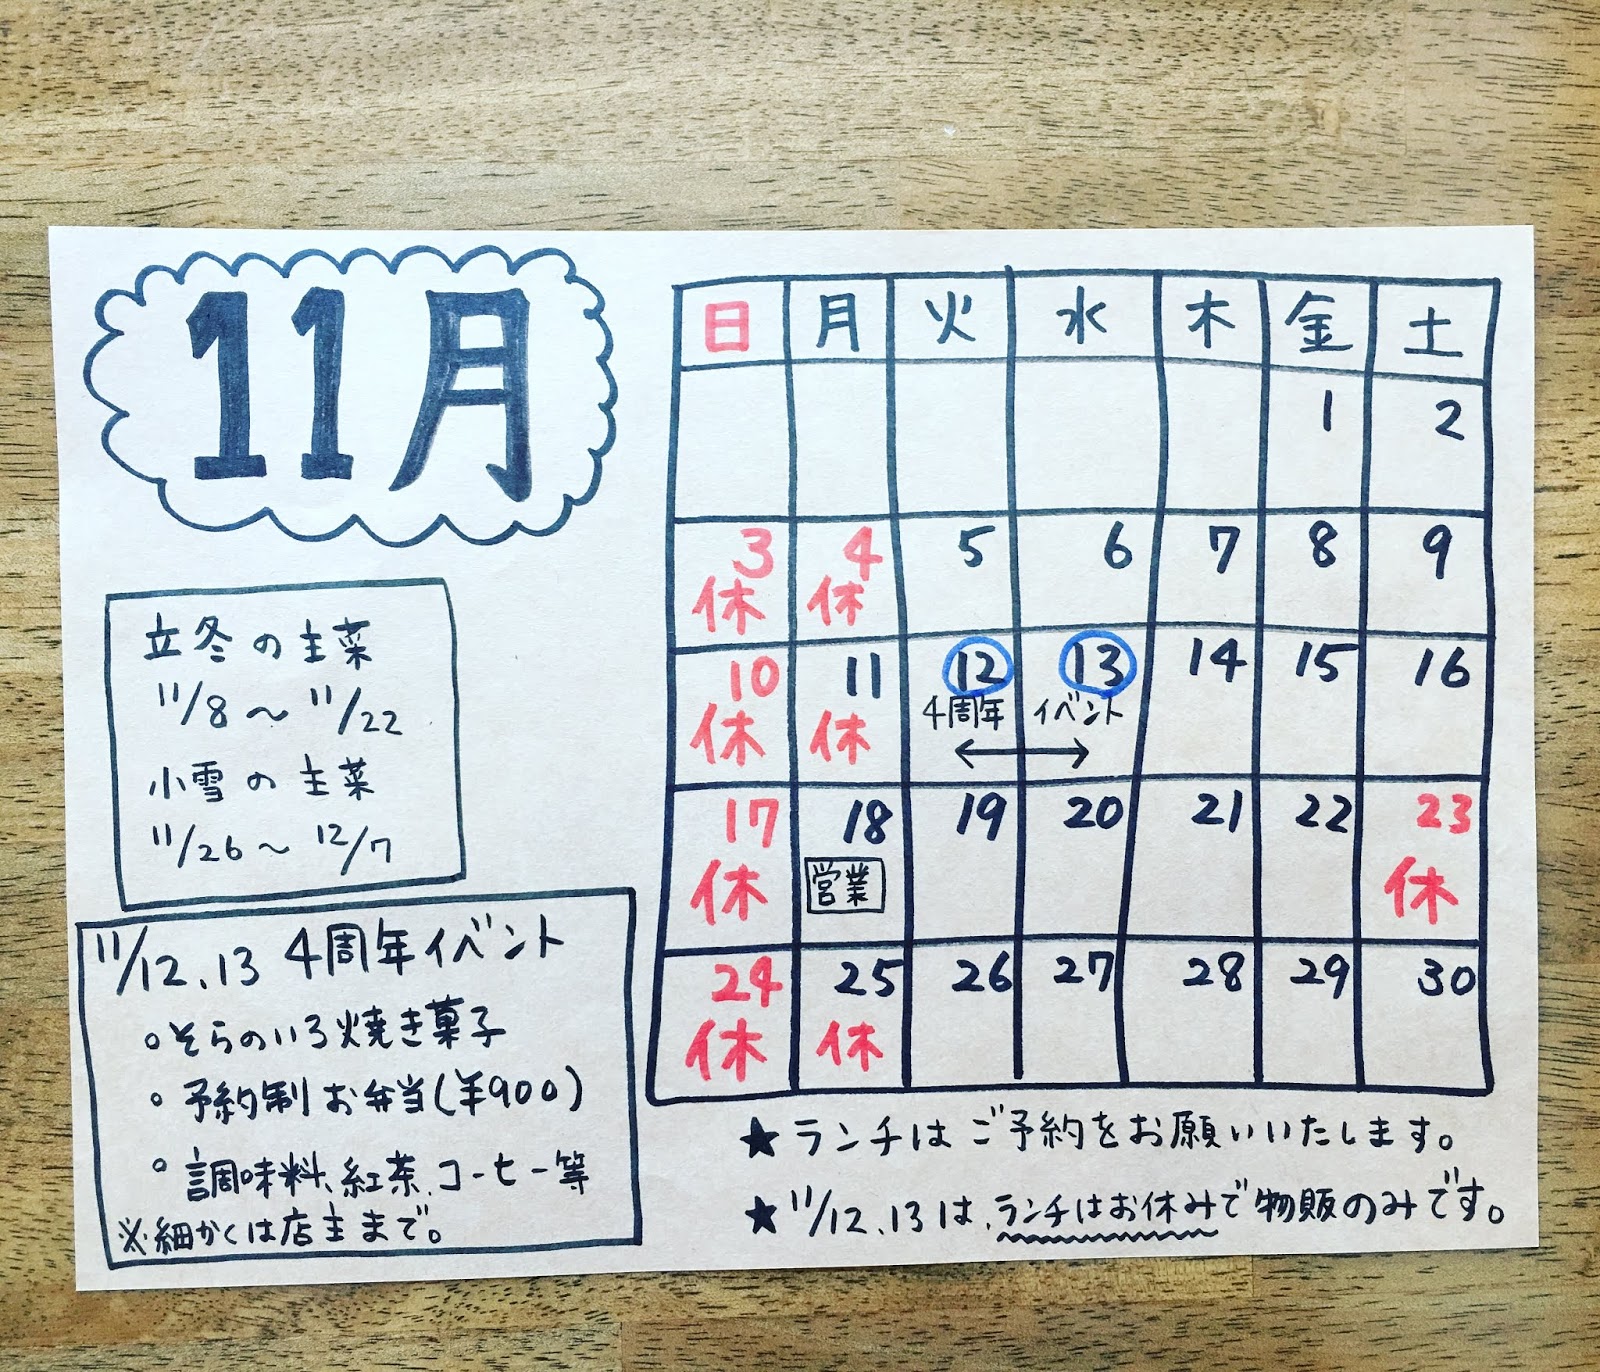 11月
立冬の主菜
11/8～11/22
小雪の主菜
11/26～12/7
11/12、13 4周年イベント
。そらのいろ焼き菓子
。予約制お弁当(¥900)
。調味料、紅茶、コーヒー等
※細かくは店主まで。
日 月 火 水 木 金 土
1 2
3 4 5 6 7 8 9
休 休
10 11 12 13 14 15 16
休 休 4周年 イベント
17 18 19 20 21 22 23
休 営業 休
24 25 26 27 28 29 30
休 休
★ランチはご予約をお願いいたします。
★11/12、13は、ランチはお休みで物販のみです。